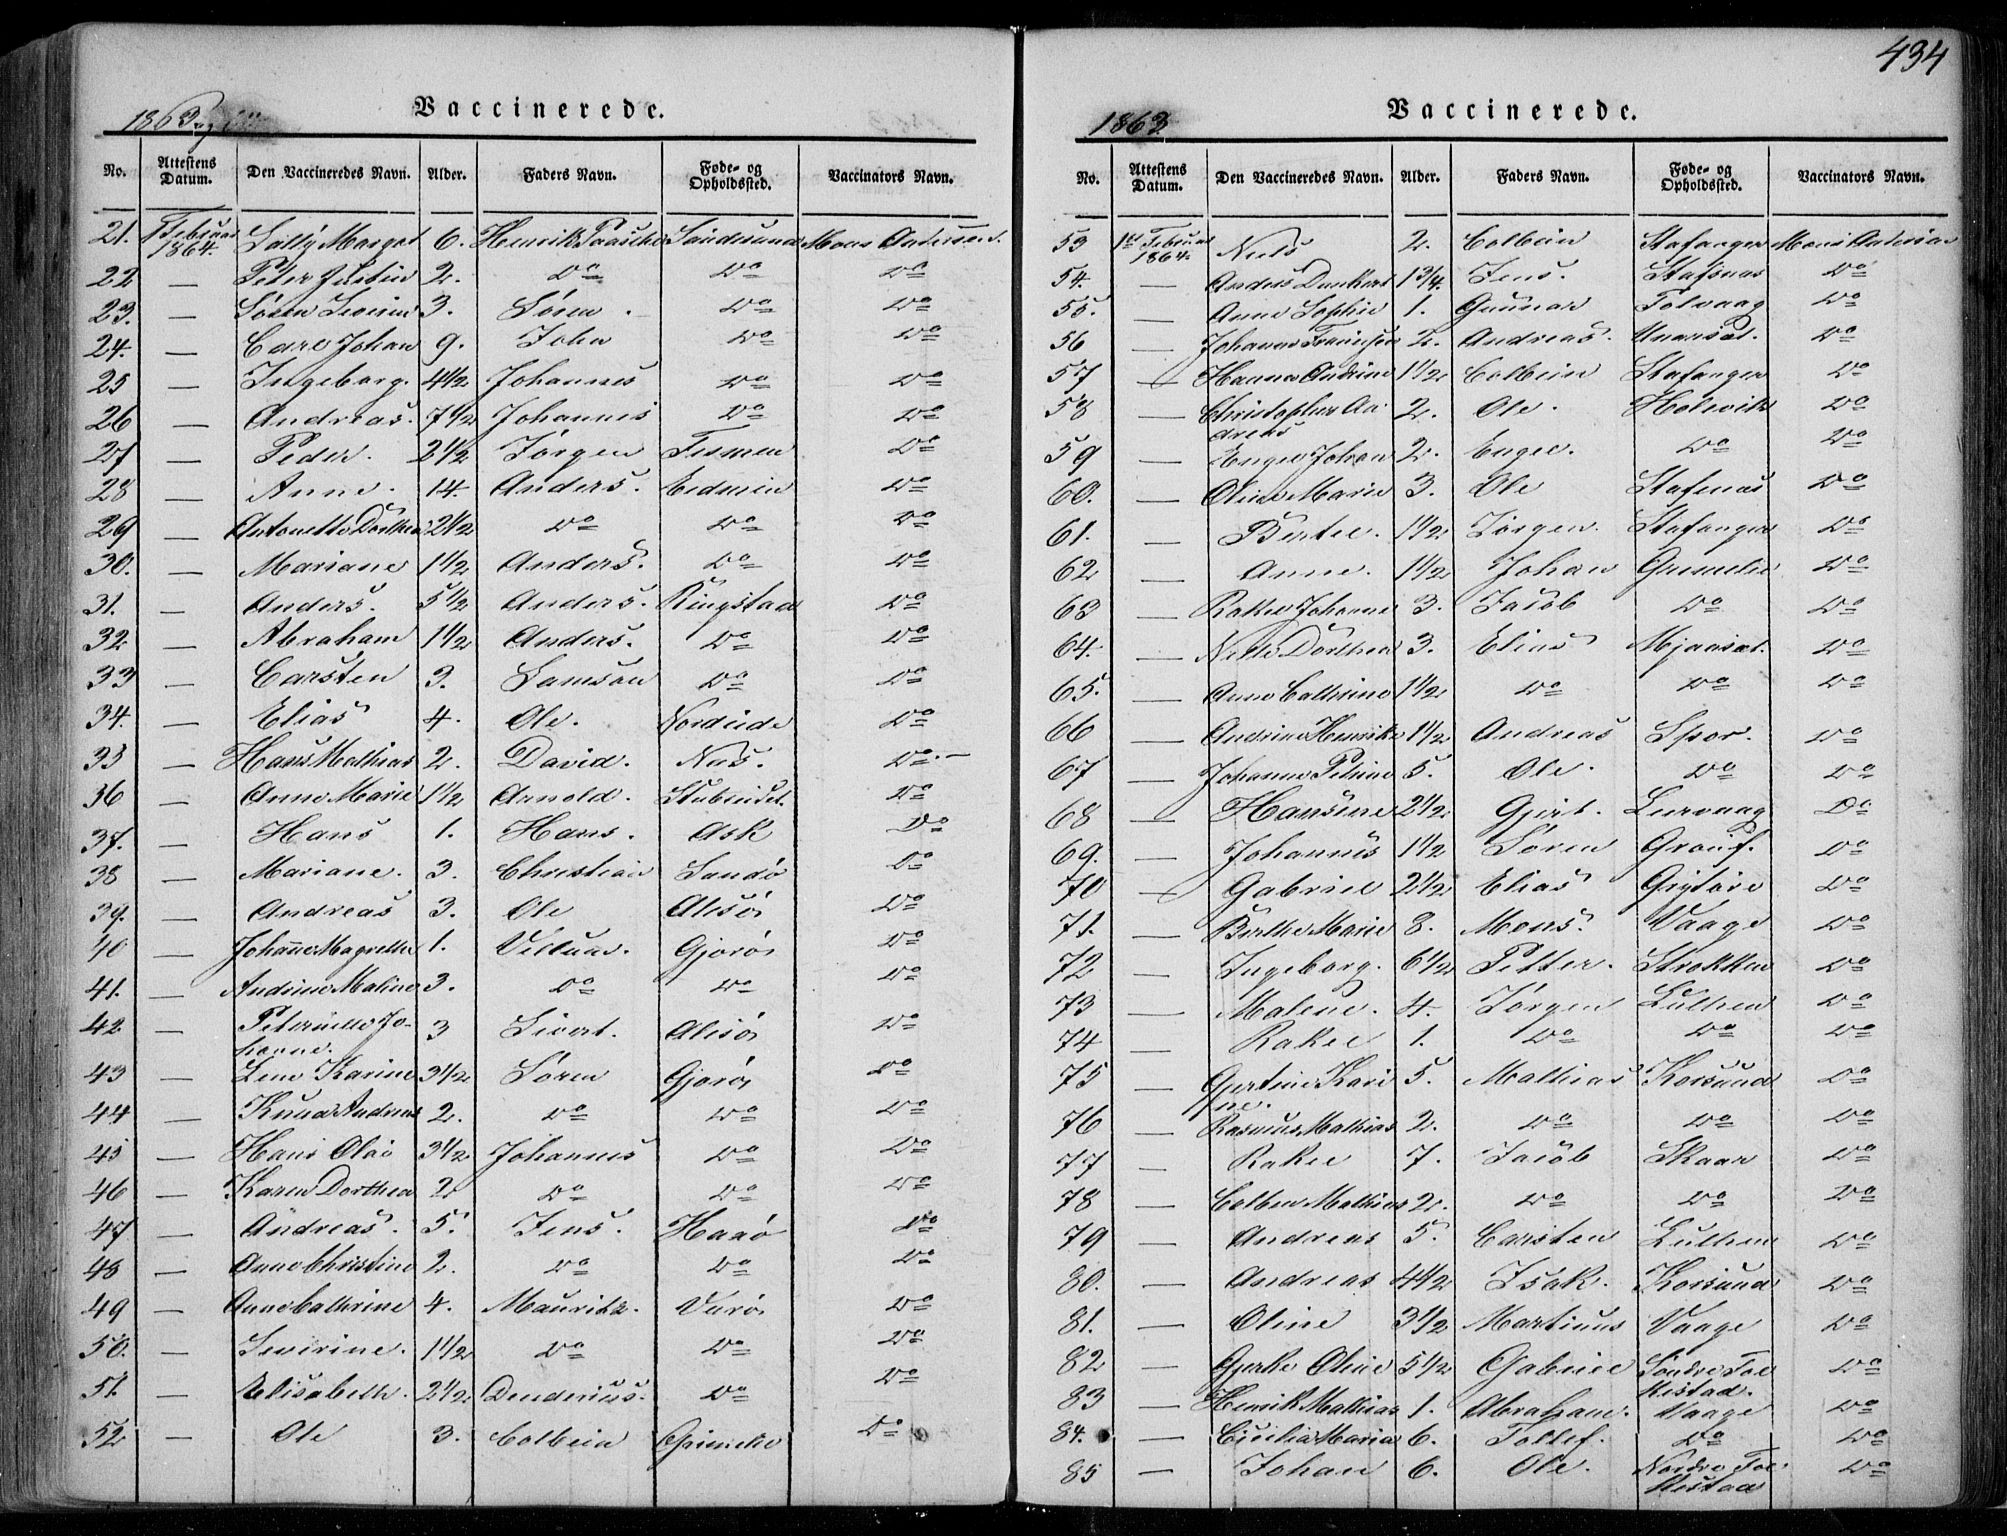 434
1863
Vaccinerede.
No. Attestens Datum. Den Vaccineredes Navn. Alder. Faders Navn. Føde- og Opholdssted. Vaccinators Navn.
21. Februar 1864. Sally Margot 6. Henrik Paasche Sandesund Mons Andersen.
22 — Peter Justin 2. Do Do Do
23. — Søren Severin 3. Søren. Do Do
24. — Carl Johan 9. John Do Do
25 — Ingeborg. 4 1/2 Johannes Do Do
26 — Andreas. 7 1/2 Johannes Do Do
27 — Peder. 2 1/2 Jørgen Do
28 — Anne. 14. Anders. Do
29 — Antonette Dorthea 2 1/2 Do Do Do
30. — Mariane 1 1/2 Anders. Do Do
31. — Anders. 5 1/2 Anders. Ringstad Do
32 — Abraham 1 1/2 Anders. Do Do
33 — Carsten 3. Samson Do Do
34. — Elias 4. Ole. Do
35 — Hans Mathias 2. David. Nes. Do
36 — Anne Marie 1 1/2 Arnold. Do
37. — Hans 1. Hans. Ask Do
38 — Mariane. 3. Christian Sandø Do
39. — Andreas 3. Ole Do
40 — Johanne Magrethe 1. Gjorø Do
41. — Andrine Maline 3. Do Do Do
42 — Peternelle Johanne. 3 Sivert. Do
43 — Lene Karine 3 1/2 Søren Gjorø Do
44 — Knud Andreas 2. Do Do Do
45 — Hans Olai 3 1/2 Johannes Do Do
46 — Karen Dorthea 2 Do Do Do
47 — Andreas. 5. Jens. Do
48 — Anne Christine 2. Do Do Do
49 — Anne Cathrine 4. Mauritz. Værø Do
50. — Severine. 1 1/2 Do Do Do
51. — Elisabeth. 2 1/2 Do Do
52 — Ole 3. Colbein Grimelie Do
1863
Vaccinerede.
No. Attestens Datum. Den Vaccineredes Navn. Alder. Faders Navn. Føde- og Opholdssted. Vaccinators Navn.
53 1st Februar 1864. Niels 2. Colbein Stafanger Mons Andersen
54. — Anders 1 3/4. Jens. Stafsnæs Do
55. — Anne Sophie 1. Gunnar Do
56 — Johanne 2. Andreas. Do
57 — Hanna Andrine 1 1/2 Colbein Stafanger Do
58 — Christopher Andreas 2. Ole. Holevik Do
59 — Engel Johan 2. Engel. Do Do
60. — Oline Marie 3. Ole Stafsnæs Do
61. — Bertel. 1 1/2 Jørgen. Stafanger Do
62 — Anne. 1 1/2 Johan Grimelie Do
63 — Rakel Johanne 3. Jacob Do Do
64. — Nille Dorthea 3. Elias Mjaaset. Do
65. — Anne Cathrine 1 1/2 Do Do Do
66 — Andrine Henrikke 1 1/2 Andreas Spor. Do
67 — Johanne Petrine 5. Ole. Do Do
68 — Hansine 2 1/2 Gjert. Lervaag Do
69. — Johannes 1 1/2 Søren Do
70 — Gabriel 2 1/2 Elias Grytøre Do
71. — Berthe Marie 8. Mons. Vaage Do
72 — Ingeborg. 6 1/2 Petter. Strokken Do
73 — Malene. 4. Jørgen Luthen Do
74 — Rakel 1. Do Do Do
75 — Gjertine Karine. 5. Mathias Korsund Do
76 — Rasmus Mathias 2. Do Do Do
77 — Rakel 7. Jacob Skaar Do
78 — Colben Mathias 2. Do Do Do
79 — Andreas 5. Carsten Luthen Do
80. — Andreas 4 1/2 Isak. Korsund Do
81. — Oline 3 1/2 Martinus Vaage Do
82 — Gjerke Oline 5 1/2 Gabriel Søndre Folkestad. Do
83 — Henrik Mathias 1. Abraham. Vaage Do
84. — Cicilia Maria 6. Tollef. Do Do
85 — Johan 6. Ole. Nordre Folkestad Do